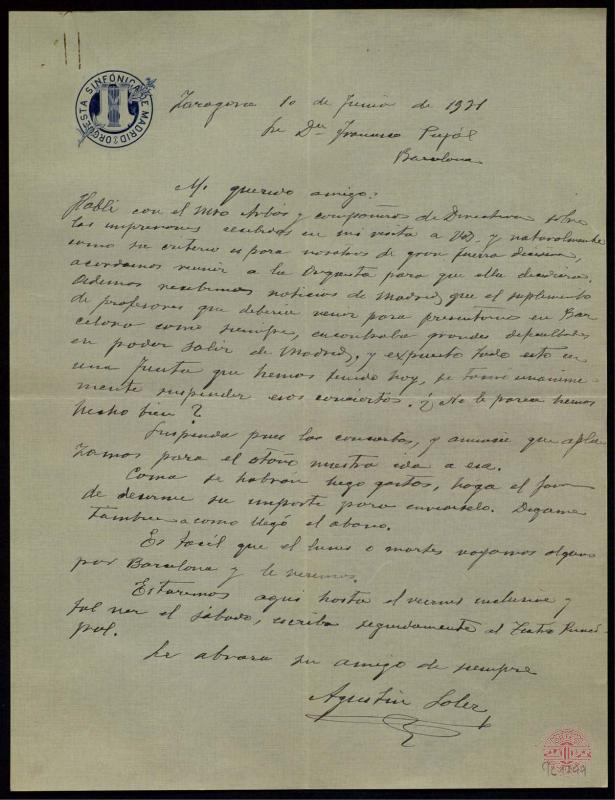 ORQUESTA SINFÓNICA DE MADRID
Zaragoza 10 de Junio de 1931
Sr Dn Francisco Pujól
Barcelona
Mi querido amigo:
Hablé con el Mtro Arbós y compañeros de Directiva sobre
las impresiones recibidas en mi visita a Vd. y naturalmente
como su criterio es para nosotros de gran fuerza decisiva,
acordamos reunir a la Orquesta para que ella decidiera.
Ademas recibimos noticias de Madrid, que el suplemento
de profesores que debería venir para presentarnos en Bar
celona como siempre, encontraba grandes dificultades
en poder salir de Madrid, y expuesto todo esto en
una Junta que hemos tenido hoy, se tomó unánime-
mente suspender esos conciertos. ¿No le parece hemos
hecho bien?
Suspenda pues los conciertos, y anuncie que apla
zamos para el otoño nuestra ida a esa.
Como se habrán hecho gastos, haga el favor
de decirme su importe para enviarselo. Digame
tambien a como llegó el abono.
Es facil que el lunes o martes vayamos alguno
por Barcelona y le veremos.
Estaremos aqui hasta el viernes inclusive y
tal vez el sábado, escriba seguidamente al Teatro Princi-
pal.
Le abraza su amigo de siempre
Agustin Soler